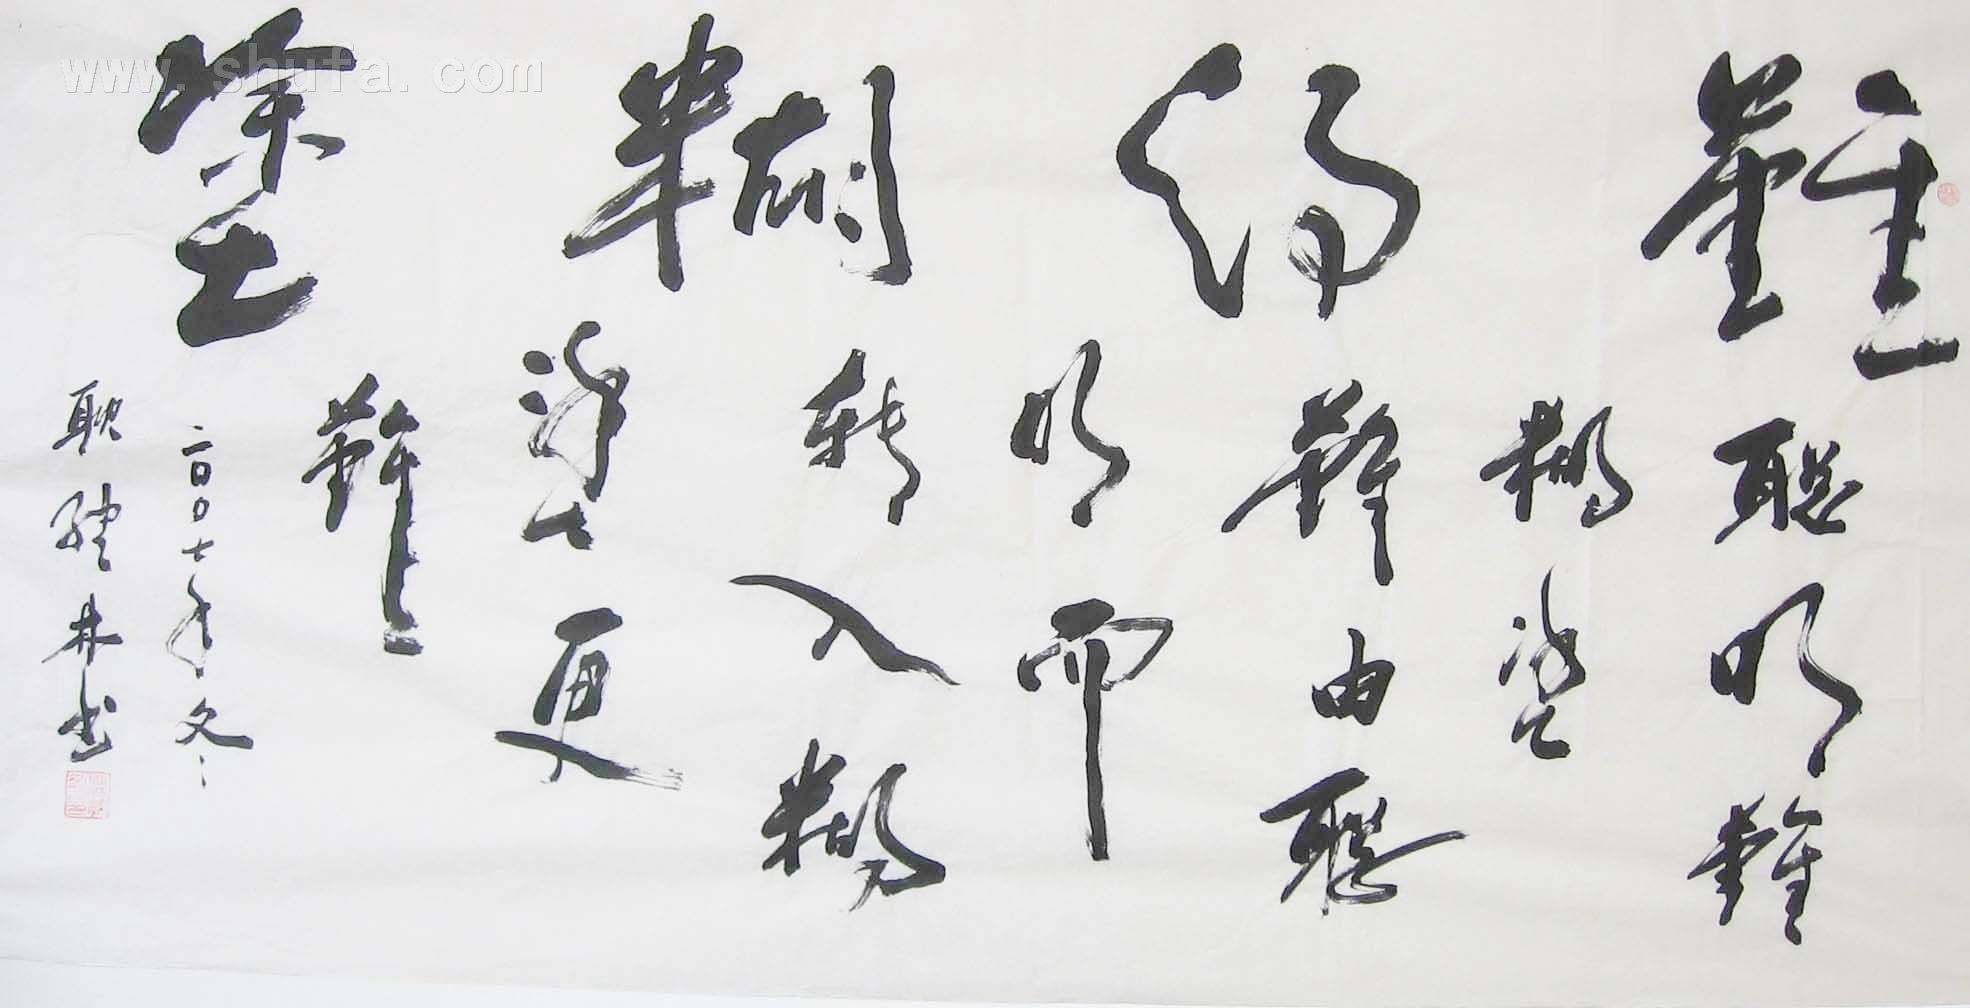 難得糊塗
聰明難
糊塗
難由聰
明而
轉入糊
塗更
難
二00七年冬
耿 林书
www.shufa.com